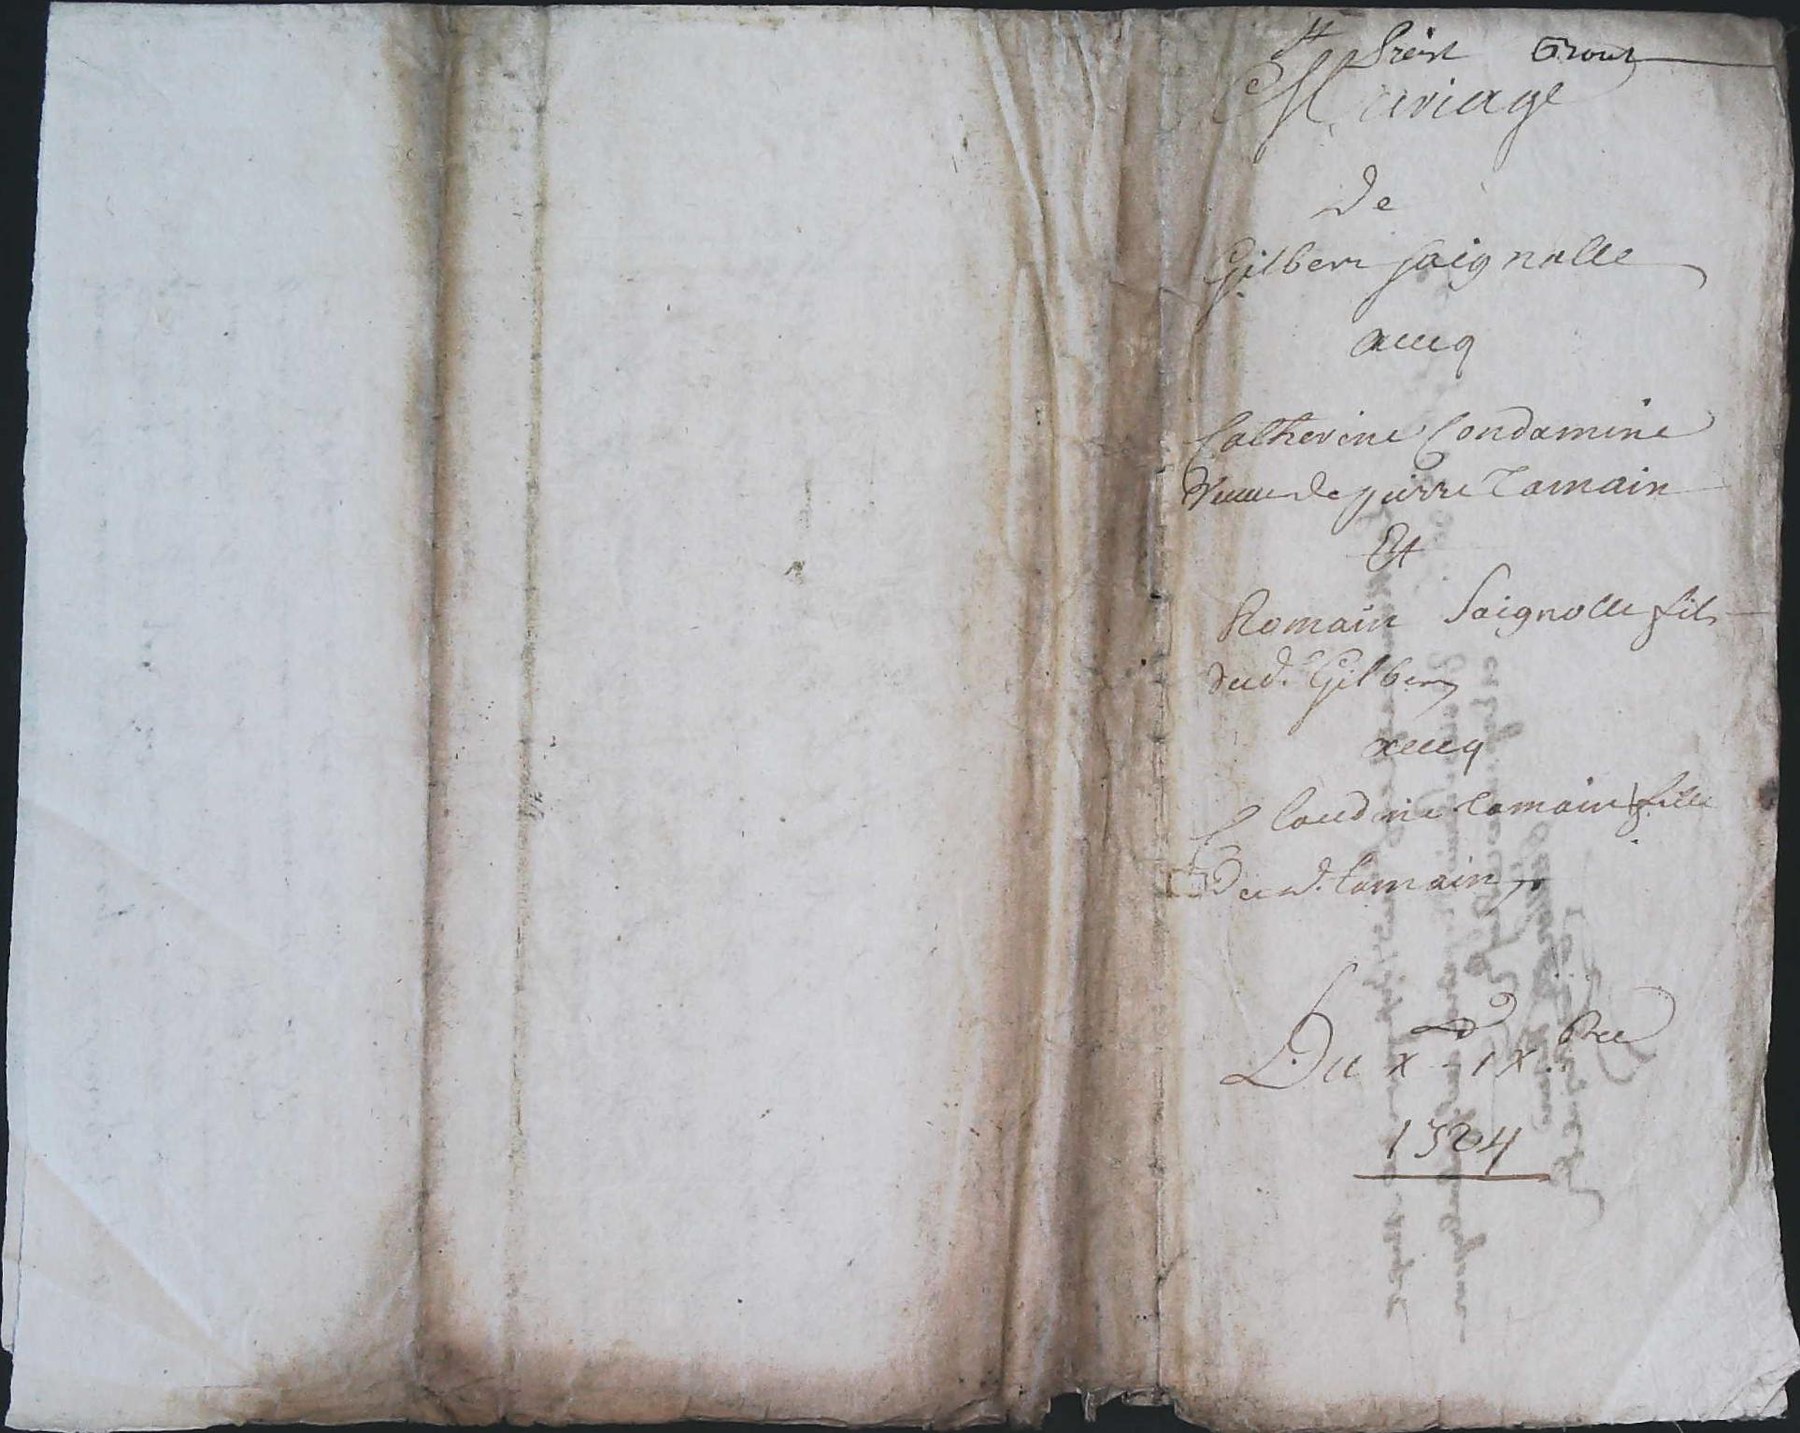 St Priest
Mariage
de
Gilbert Saignolle
aueq
Catherine Condamine
veuue de pierre Tamain
Et
Romain Saignolle fils
dud. Gilbert
aueq
Claudine Tamain fille
dud. tamain
Du x
1724